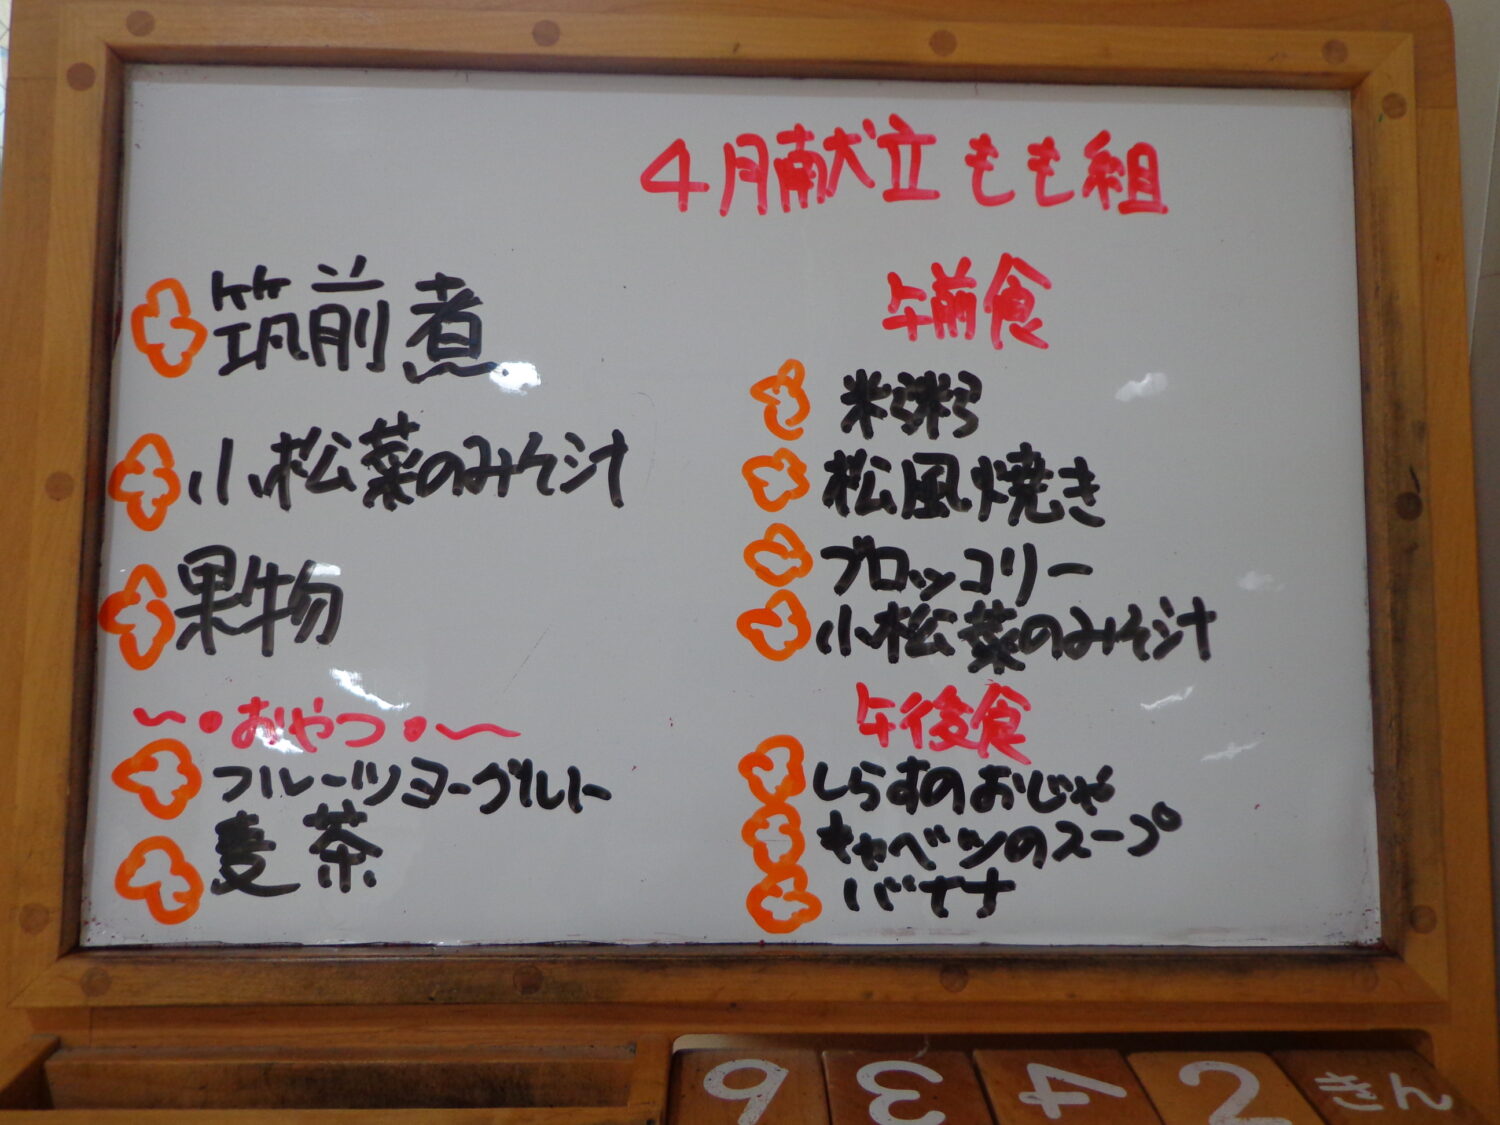 4月献立 もも組
筑前煮
小松菜のみそ汁
果物
〜・おやつ・〜
フルーツヨーグルト
麦茶
午前食
米粥
松風焼き
ブロッコリー
小松菜のみそ汁
午後食
しらすのおじや
キャベツのスープ
バナナ
6 3 4 2 きん